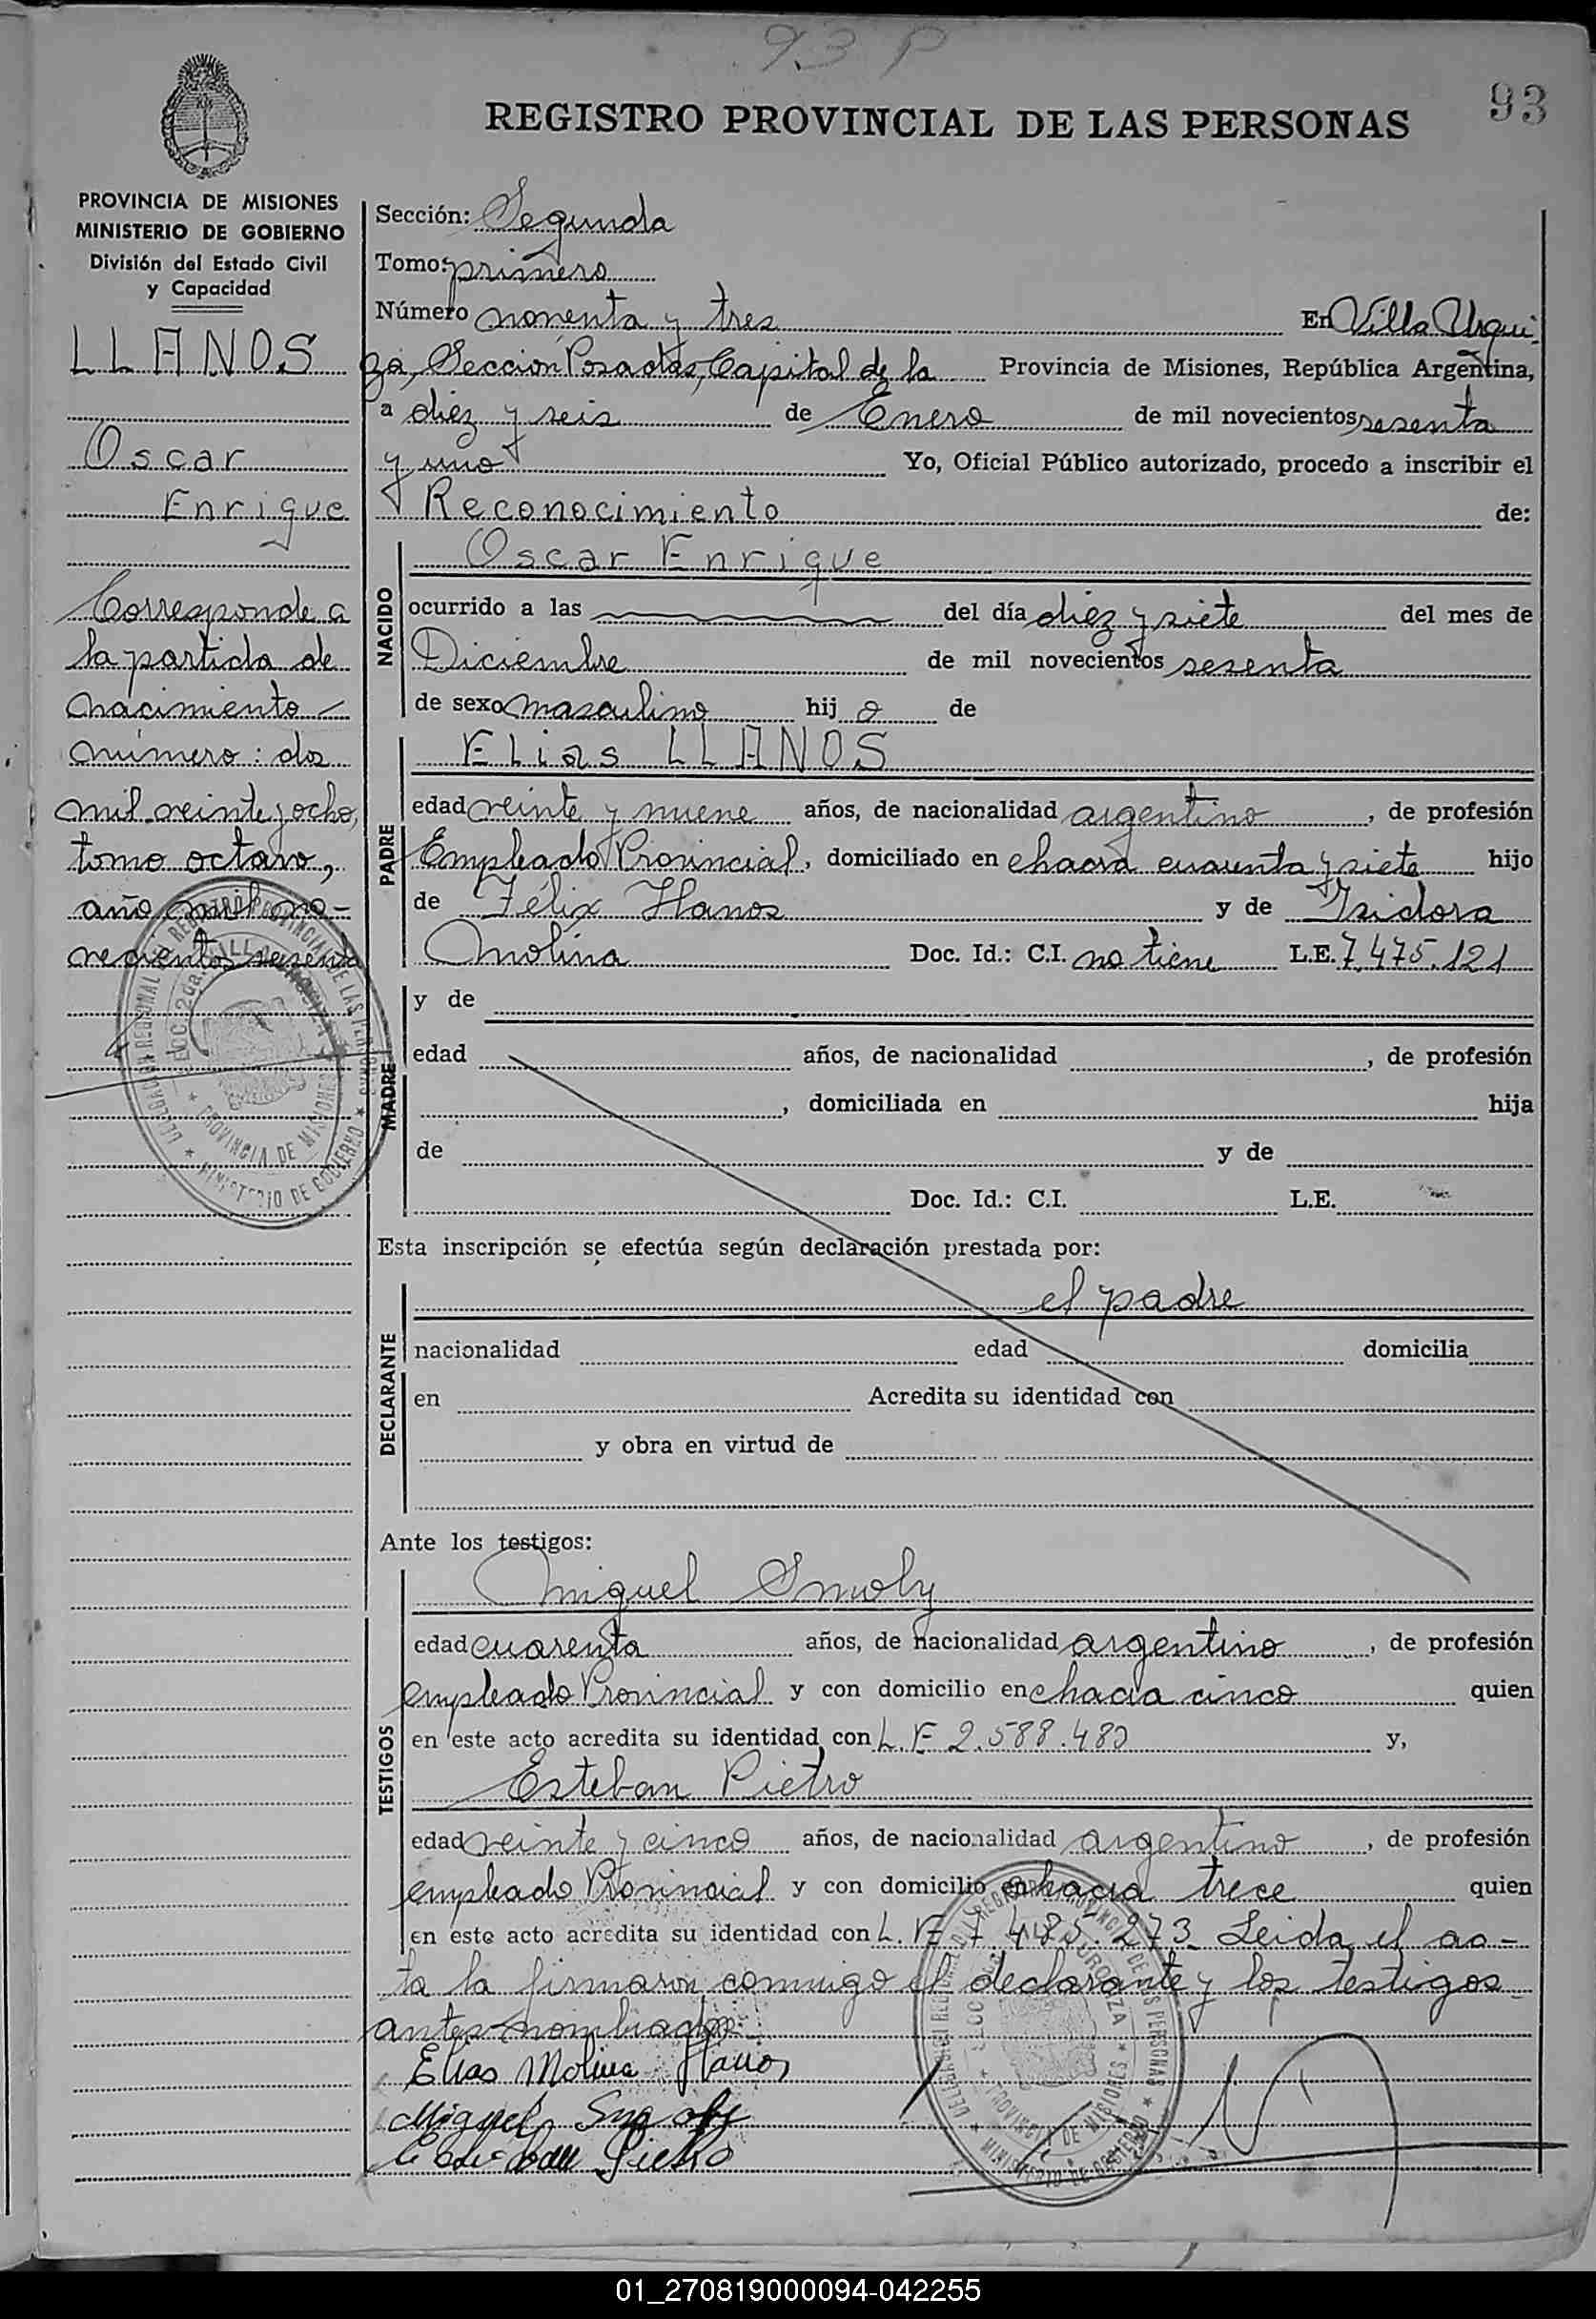 93 P
93
REGISTRO PROVINCIAL DE LAS PERSONAS
PROVINCIA DE MISIONES
MINISTERIO DE GOBIERNO
División del Estado Civil
y Capacidad
LLANOS
Oscar
Enrique
Corresponde a
la partida de
nacimiento
número: dos
mil veinte y ocho,
tomo octavo,
año mil no-
vecientos sesenta
Sección: Segunda
Tomo: primero
Número noventa y tres En Villa Urqui-
za, Sección Posadas, Capital de la Provincia de Misiones, República Argentina,
a diez y seis de Enero de mil novecientos sesenta
y uno Yo, Oficial Público autorizado, procedo a inscribir el
Reconocimiento de:
NACIDO
Oscar Enrique
ocurrido a las del día diez y siete del mes de
Diciembre de mil novecientos sesenta
de sexo masculino hij o de
PADRE
Elias LLANOS
edad veinte y nueve años, de nacionalidad argentino, de profesión
Empleado Provincial, domiciliado en chacra cuarenta y siete hijo
de Félix Llanos y de Isidora
Molina Doc. Id.: C.I. no tiene L.E. 7.475.121
MADRE
y de
edad años, de nacionalidad , de profesión
, domiciliada en hija
de y de
Doc. Id.: C.I. L.E.
Esta inscripción se efectúa según declaración prestada por:
DECLARANTE
el padre
nacionalidad edad domicilia
en Acredita su identidad con
y obra en virtud de
Ante los testigos:
TESTIGOS
Miguel Smoly
edad cuarenta años, de nacionalidad argentino, de profesión
empleado Provincial y con domicilio en chacra cinco quien
en este acto acredita su identidad con L.E 2.588.480 y,
Esteban Pietro
edad veinte y cinco años, de nacionalidad argentino, de profesión
empleado Provincial y con domicilio en chacra trece quien
en este acto acredita su identidad con L.E 7.485.273 Leida el ac-
ta la firmaron conmigo el declarante y los testigos
antes nombrados
Elias Molina Llanos
Miguel Smoly
Esteban Pietro
DELEGACION REGIONAL DEL REGISTRO PROVINCIAL DE LAS PERSONAS
SECC. 2da. VILLA URQUIZA
PROVINCIA DE MISIONES
MINISTERIO DE GOBIERNO
01_270819000094-042255